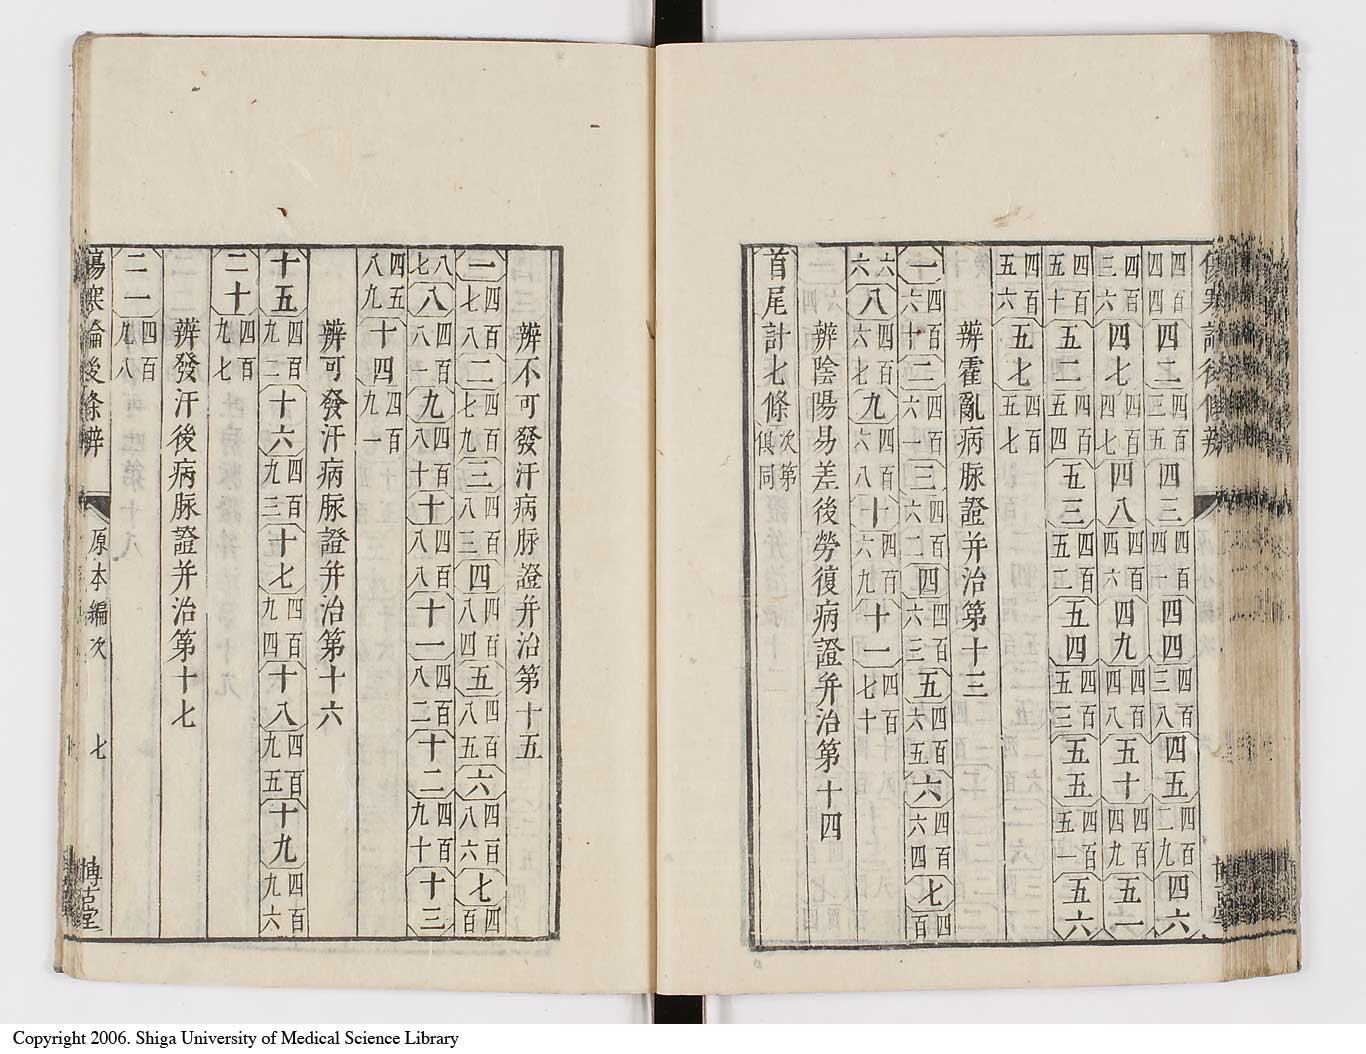 四百四四 四二 四百三五 四三 四百四一 四四 四百三八 四五 四百二九 四六
四百三六 四七 四百四七 四八 四百四六 四九 四百四八 五十 四百四九 五一
四百五十 五二 四百五四 五三 四百五二 五四 四百五三 五五 四百五一 五六
四百五六 五七 四百五七
辨霍亂病脉證并治第十三
一 四百六十 二 四百六一 三 四百六二 四 四百六三 五 四百六五 六 四百六四 七 四百
六六 八 四百六七 九 四百六八 十 四百六九 十一 四百七十
辨陰陽易差後勞復病證并治第十四
首尾計七條 次第俱同
辨不可發汗病脉證并治第十五
一 四百七八 二 四百七九 三 四百八三 四 四百八四 五 四百八五 六 四百八六 七 四百
八七 八 四百八一 九 四百八十 十 四百八八 十一 四百八二 十二 四百九十 十三
四五八九 十四 四百九一
辨可發汗病脉證并治第十六
十五 四百九二 十六 四百九三 十七 四百九四 十八 四百九五 十九 四百九六
二十 四百九七
辨發汗後病脉證并治第十七
二一 四百九八
傷寒論後條辨 原本編次 七 博古堂
Copyright 2006. Shiga University of Medical Science Library